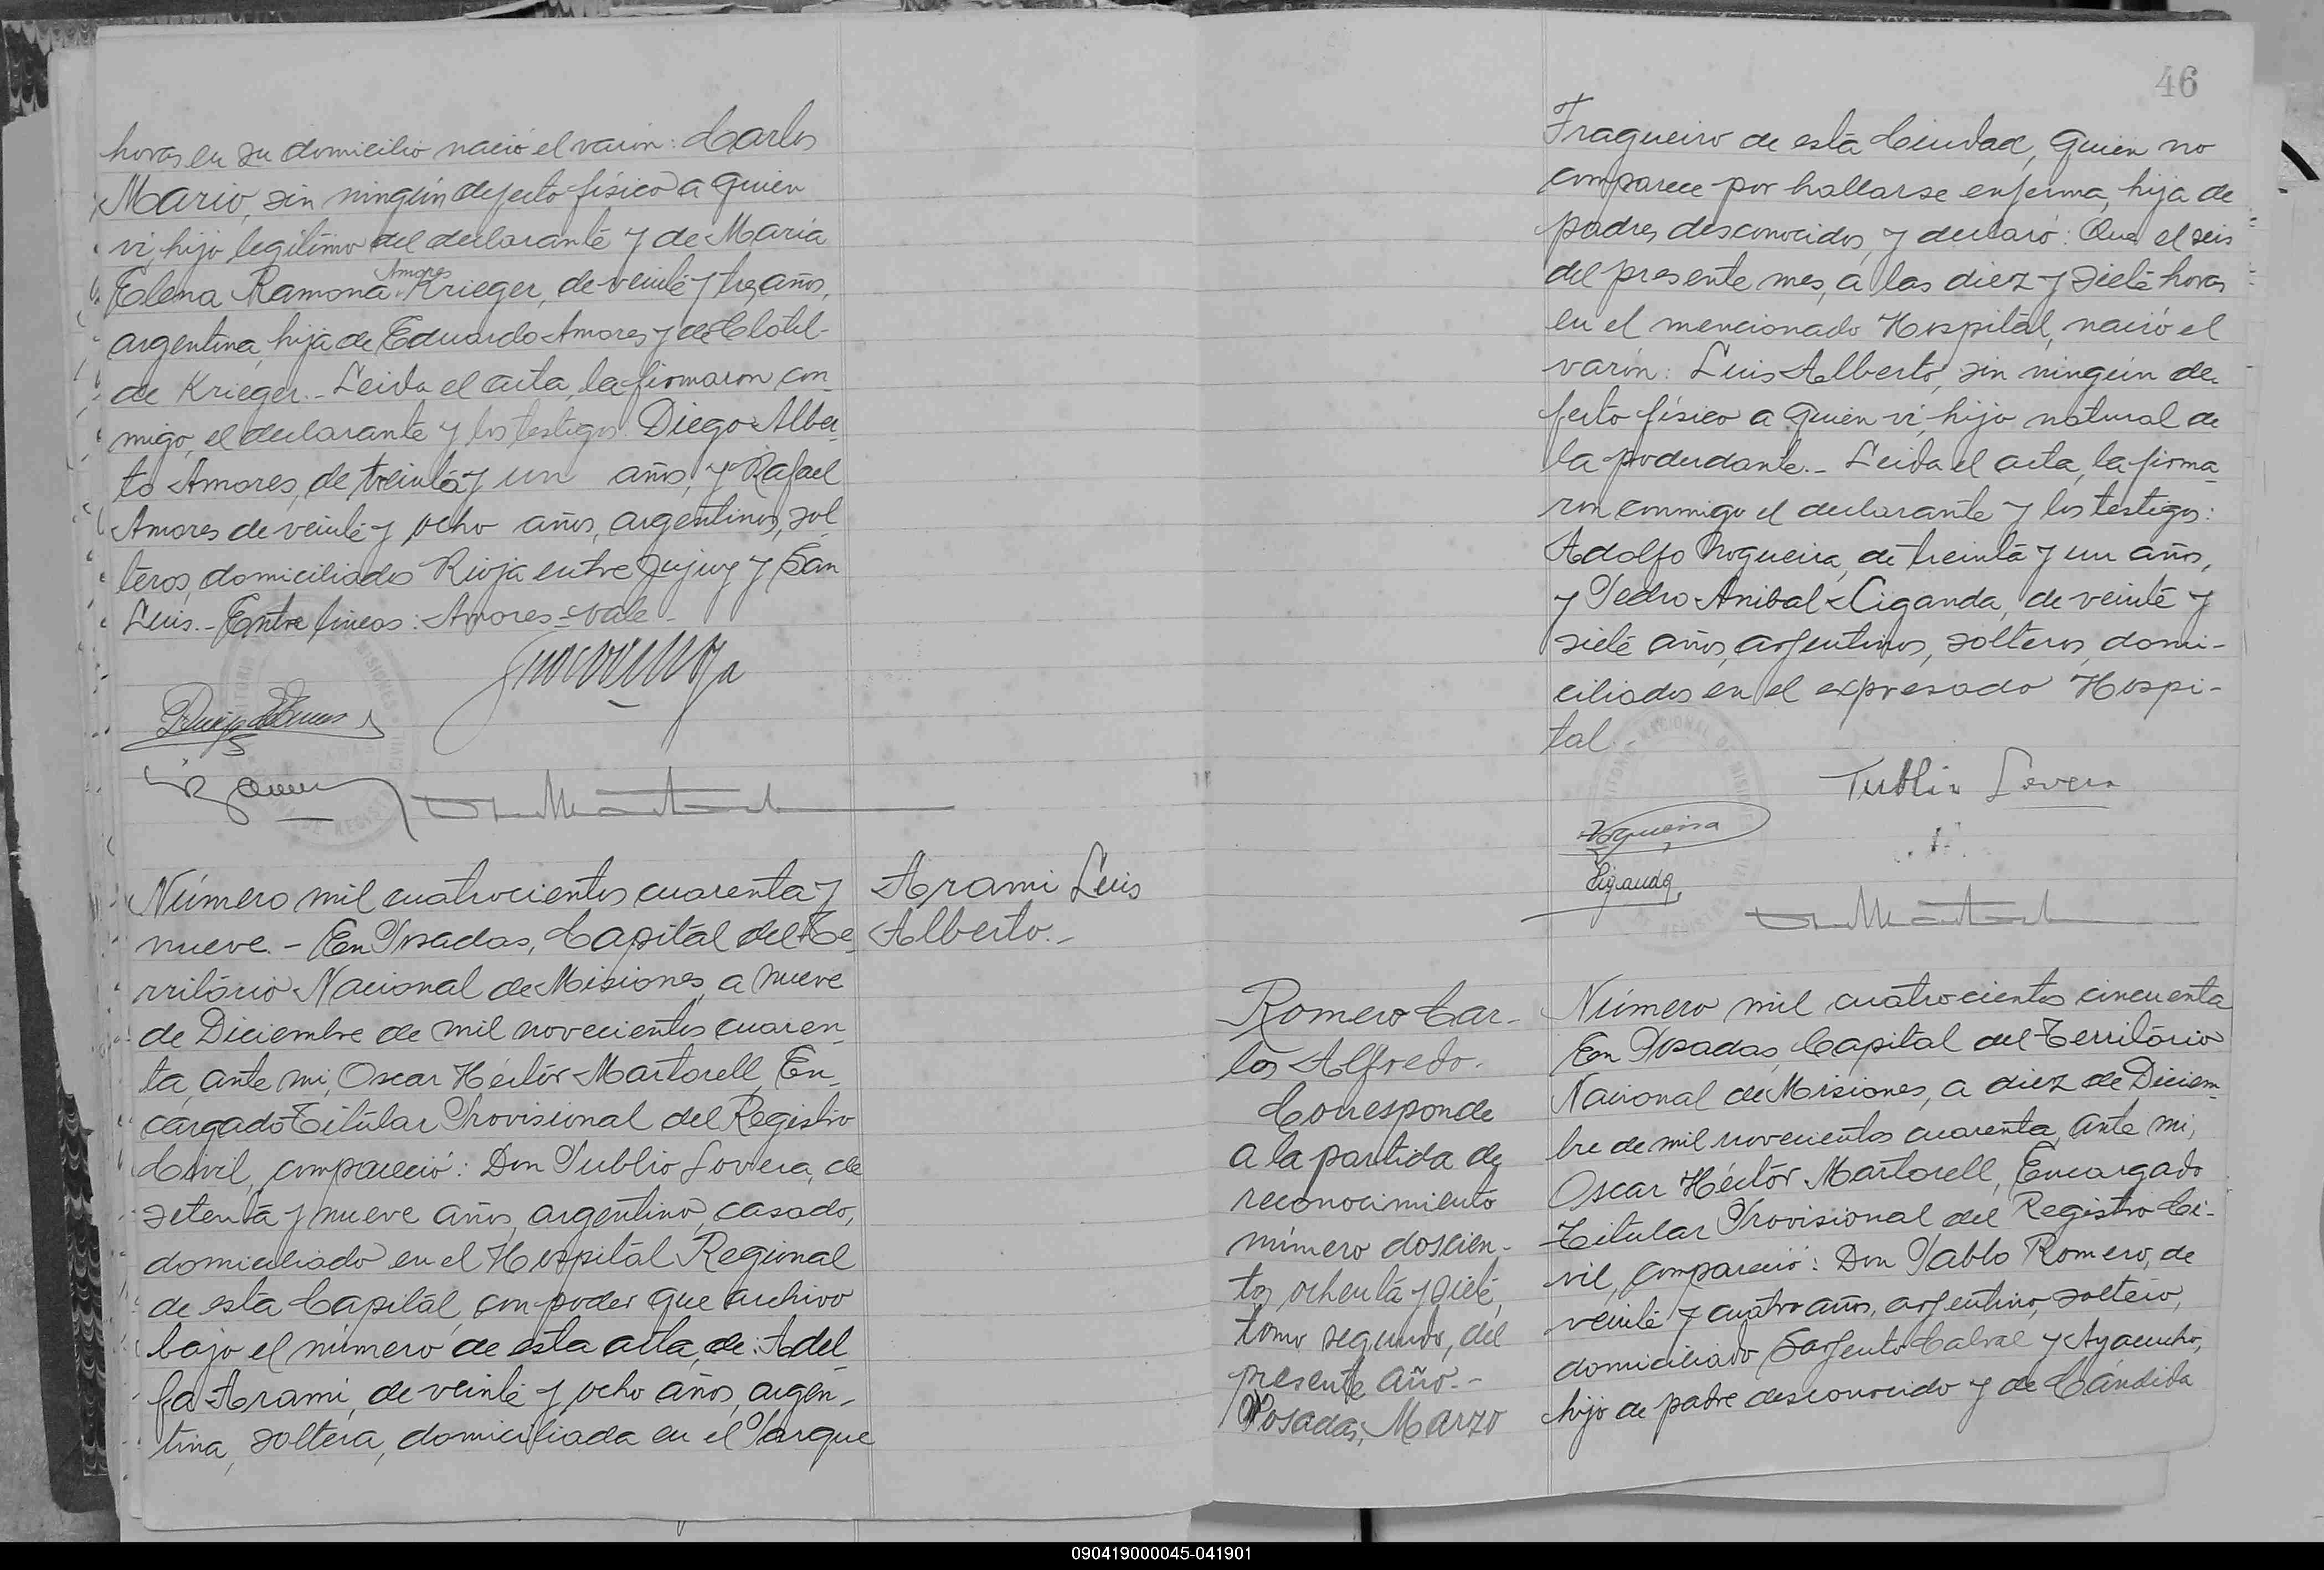 horas en su domicilio nació el varón: Carlos
Mario, sin ningún defecto físico a quien
vi, hijo legítimo del declarante y de María
Elena Ramona Amores Krieger, de veinte y tres años,
argentina, hija de Eduardo Amores y de Clotil-
de Krieger.- Leida el acta, la firmaron con-
migo, el declarante y los testigos: Diego Alber-
to Amores, de treinta y un años, y Rafael
Amores de veinte y ocho años, argentinos, sol-
teros, domiciliados Rioja entre Jujuy y San
Luis.- Entre lineas: Amores = Vale.-
Número mil cuatrocientos cuarenta y
nueve.- En Posadas, Capital del Te-
rritorio Nacional de Misiones, a nueve
de Diciembre de mil novecientos cuaren-
ta, ante mi, Oscar Héctor Martorell, En-
cargado Titular Provisional del Registro
Civil, compareció: Don Publio Lovera, de
setenta y nueve años, argentino, casado,
domiciliado en el Hospital Regional
de esta Capital, con poder que archivo
bajo el número de esta acta, de: Adel-
fa Arami, de veinte y ocho años, argen-
tina, soltera, domiciliada en el Parque
Arami Luis
Alberto.-
46
Fragueiro de esta Ciudad, quien no
comparece por hallarse enferma, hija de
padres desconocidos, y declaró: Que el seis
del presente mes, a las diez y siete horas
en el mencionado Hospital, nació el
varón: Luis Alberto, sin ningún de-
fecto físico a quien vi, hijo natural de
la poderdante.- Leida el acta, la firma-
ron conmigo el declarante y los testigos:
Adolfo Nogueira, de treinta y un años,
y Pedro Anibal Ciganda, de veinte y
siete años, argentinos, solteros, domi-
ciliados en el expresado Hospi-
tal.-
Publio Lovera
Nogueira
Ciganda
Romero Car-
los Alfredo.
Corresponde
a la partida de
reconocimiento
número doscien-
tos ochenta y siete,
tomo segundo, del
presente año.-
Posadas, Marzo
Número mil cuatrocientos cincuenta
En Posadas, Capital del Territorio
Nacional de Misiones, a diez de Diciem-
bre de mil novecientos cuarenta, ante mi,
Oscar Héctor Martorell, Encargado
Titular Provisional del Registro Ci-
vil, compareció: Don Pablo Romero, de
veinte y cuatro años, argentino, soltero,
domiciliado Sargento Cabral y Ayacucho,
hijo de padre desconocido y de Cándida
090419000045-041901